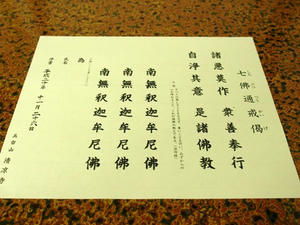 七佛通戒偈
諸悪莫作 衆善奉行
自浄其意 是諸佛教
南無釈迦牟尼佛
南無釈迦牟尼佛
南無釈迦牟尼佛
為
平成二十年 十一月二十八日
五台山 清凉寺